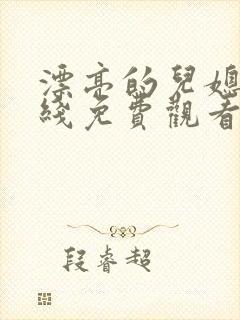 漂亮的兒媳
綫免費觀看
段睿超